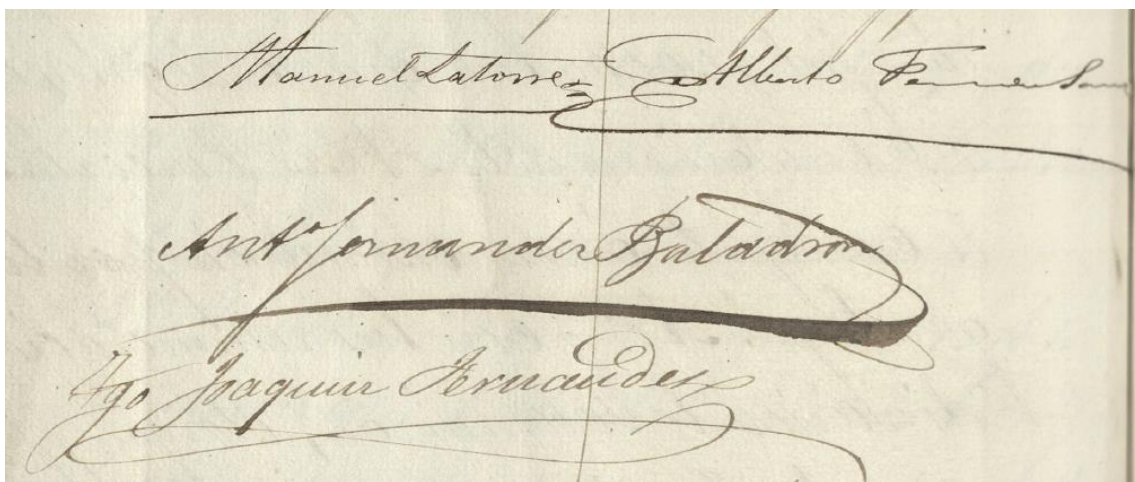 Manuel Latorre Alberto
Antº fernandez Baladron
Tgo Joaquin Fernandez